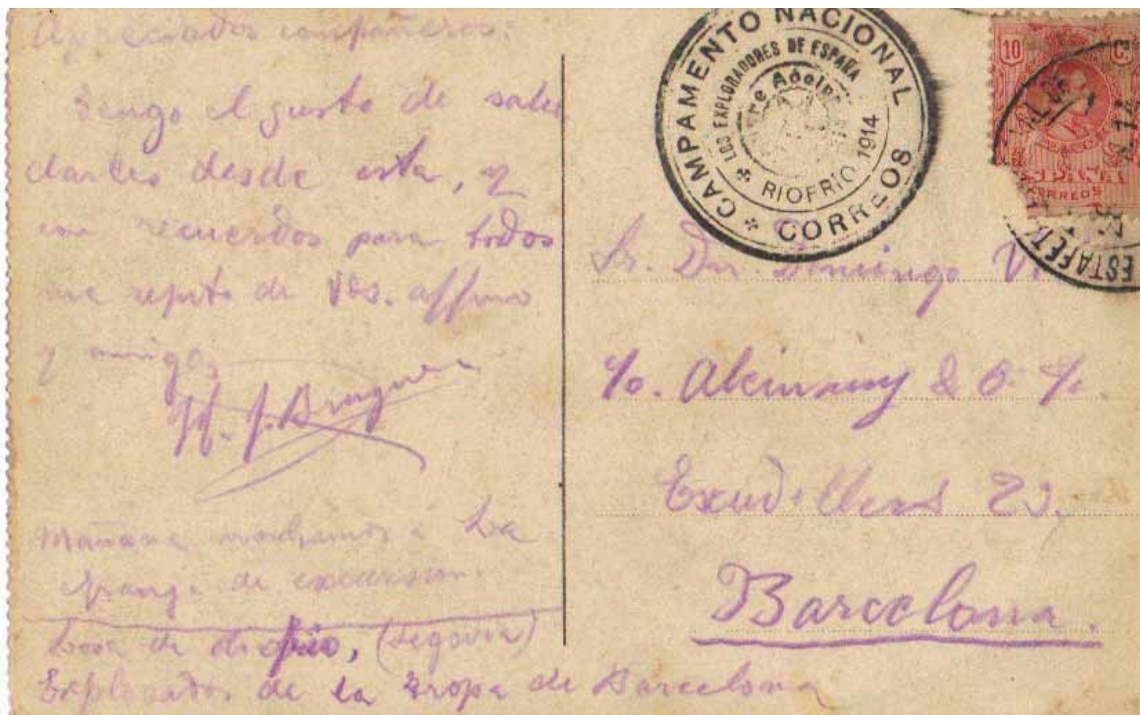 Apreciados compañeros:
Tengo el gusto de salu
darles desde esta, y
con recuerdos para todos
me repito de Vds. affmo
y amigo,
Mañana marchamos a La
Granja de excursion.
(Segovia)
Explorador de la Tropa de Barcelona
CAMPAMENTO NACIONAL
LOS EXPLORADORES DE ESPAÑA
RIOFRIO 1914
CORREOS
10 C
CORREOS
ESTAFETA
Sr. Dn. Domingo
Barcelona.